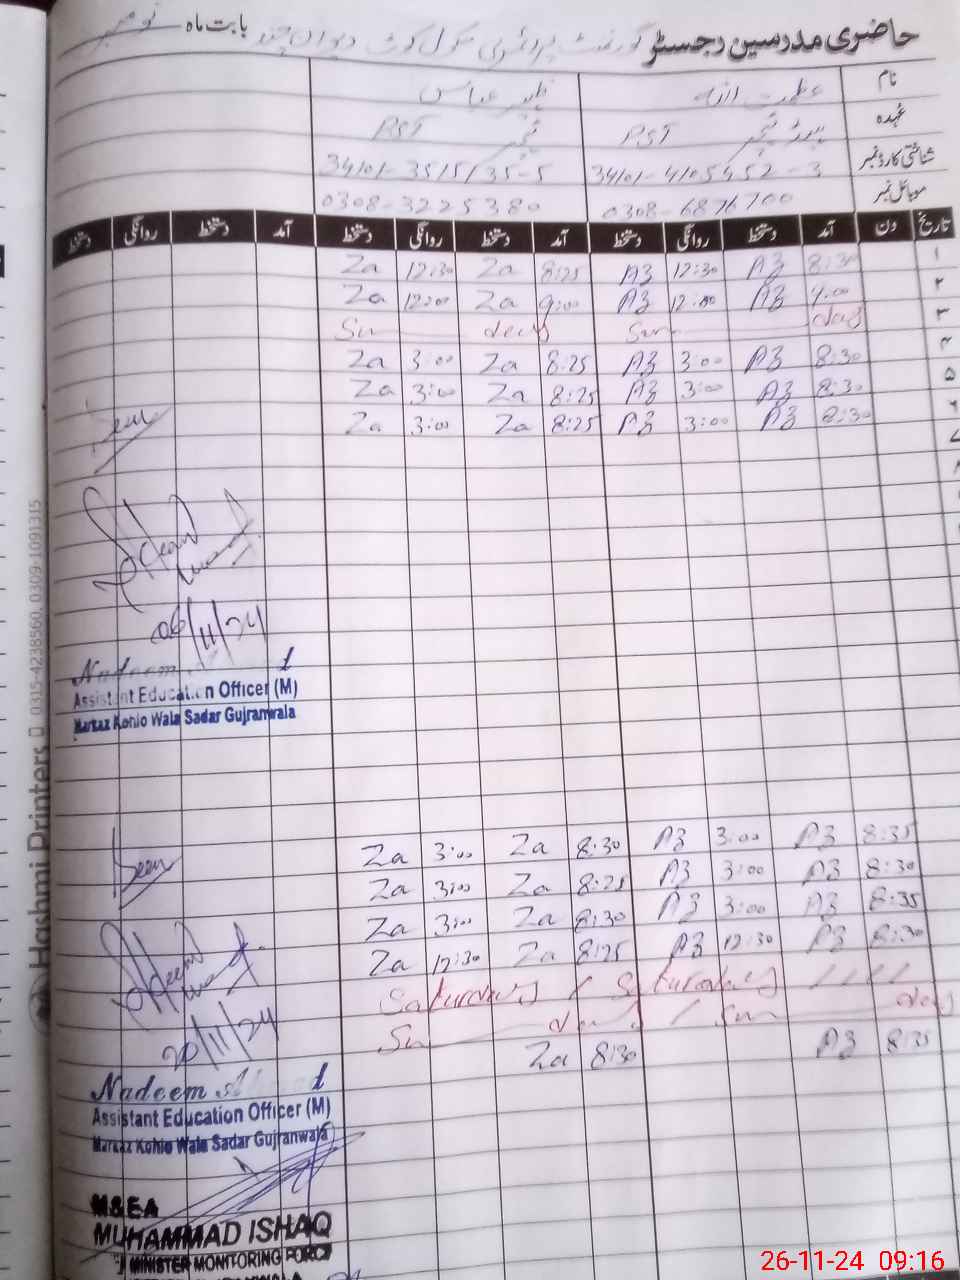 حاضری مدرسین رجسٹر گورنمنٹ پرائمری سکول کوٹ دیوان چند بابت ماہ نومبر
نام عظمت اللہ ظہیر عباس
عہدہ ہیڈ ٹیچر PST ٹیچر PST
شناختی کارڈ نمبر 34101-4105452-3 34101-3515135-5
موبائل نمبر 0308-6876700 0308-3225380
تاریخ دن آمد دستخط روانگی دستخط آمد دستخط روانگی دستخط آمد دستخط روانگی دستخط
۱ 8:30 AZ 12:30 AZ 8:25 Za 12:30 Za
۲ 9:00 AZ 12:00 AZ 9:00 Za 12:00 Za
۳ Sun day Sun days
۴ 8:30 AZ 3:00 AZ 8:25 Za 3:00 Za
۵ 8:30 AZ 3:00 AZ 8:25 Za 3:00 Za
۶ 8:30 AZ 3:00 AZ 8:25 Za 3:00 Za
۷
Seen
06/11/24
Nadeem
Assistant Education Officer (M)
Markaz Kohlo Wala Sadar Gujranwala
8:35 AZ 3:00 AZ 8:30 Za 3:00 Za
8:30 AZ 3:00 AZ 8:25 Za 3:00 Za
8:35 AZ 3:00 AZ 8:30 Za 3:00 Za
8:30 AZ 12:30 AZ 8:25 Za 12:30 Za
Saturdays / Saturdays
Sun day / Sun days
8:35 AZ 8:30 Za
Seen
20/11/24
Nadeem Ahmad
Assistant Education Officer (M)
Markaz Kohlo Wala Sadar Gujranwala
M&EA
MUHAMMAD ISHAQ
MINISTER MONITORING FORCE
Hashmi Printers 0315-4238560, 0309-1091315
26-11-24 09:16